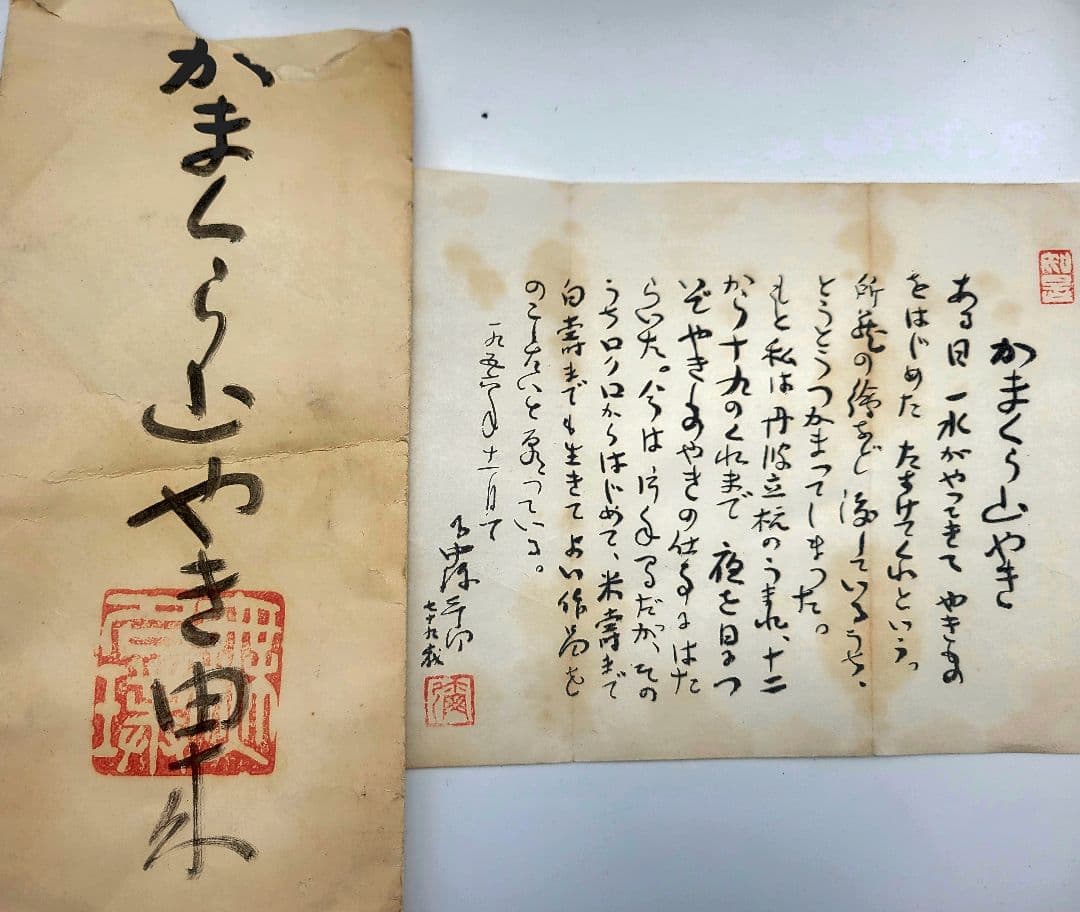 かまくら山やき由来
かまくら山やき
ある日 一水がやってきて やきもの
をはじめた たすけてくれという。
所蔵の絵など 渡しているうち、
とうとうつかまってしまった。
もと私は丹波立杭のうまれ、十二
から十九のくれまで 夜を日につ
いでやきものやきの仕事にはた
らいた。今は片手間だが、その
うちロクロからはじめて、米寿まで
白寿までも生きて よい作品を
のこしたいと思っている。
一九五六年十一月 て
七十九歳